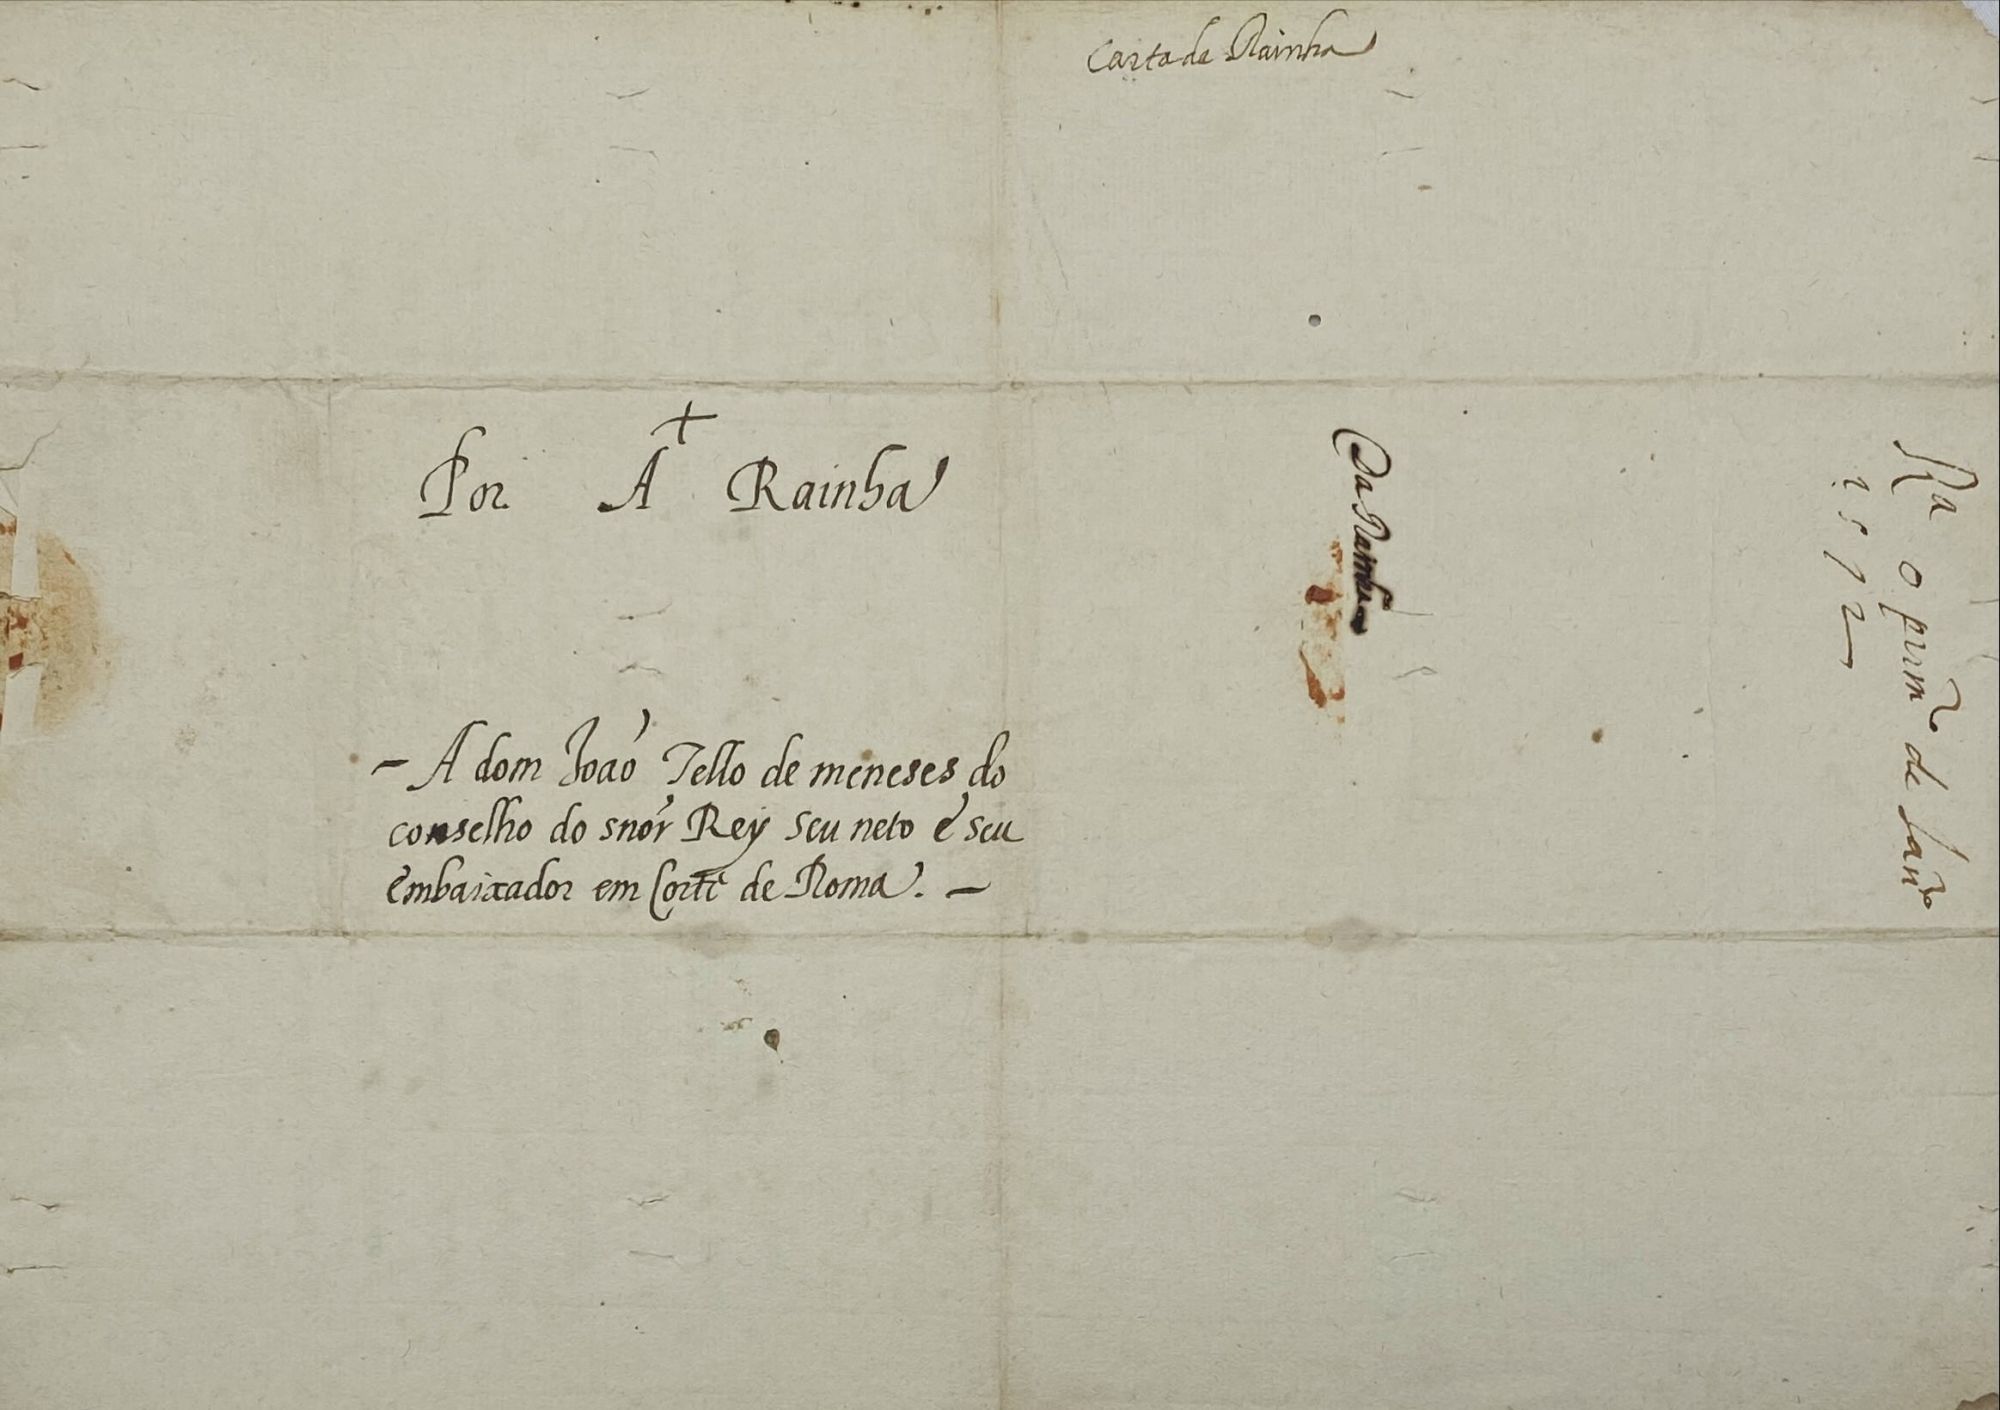 Carta da Rainha
+
Por A Rainha
- A dom João Tello de meneses do
conselho do snor Rey seu neto e seu
embaixador em Corte de Roma. -
Da Rainha
Ra o prim.ro de Jan.ro
1572